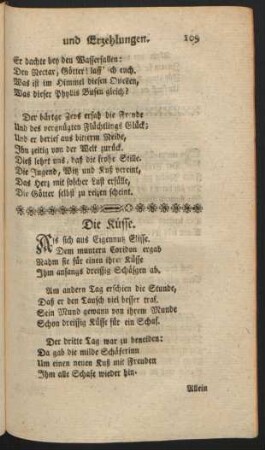 und Erzehlungen. 109
Er dachte bey den Wasserfällen:
Den Nectar, Götter! lass' ich euch.
Was ist im Himmel diesen Quellen,
Was dieser Phyllis Busen gleich?
Der bärtge Zevs ersah die Freude
Und des vergnügten Flüchtlings Glück;
Und er berief aus bitterm Neide,
Ihn zeitig von der Welt zurück.
Dieß lehrt uns, daß die frohe Stille,
Die Jugend, Witz und Kuß vereint,
Das Herz mit solcher Lust erfülle,
Die Götter selbst zu reizen scheint.
Die Küsse.
Als sich aus Eigennutz Elisse
Dem muntern Coridon ergab
Nahm sie für einen ihrer Küsse
Ihm anfangs dreißig Schäfgen ab.
Am andern Tag erschien die Stunde,
Daß er den Tausch viel besser traf.
Sein Mund gewann von ihrem Munde
Schon dreißig Küsse für ein Schaf.
Der dritte Tag war zu beneiden:
Da gab die milde Schäferinn
Um einen neuen Kuß mit Freuden
Ihm alle Schafe wieder hin.
Allein